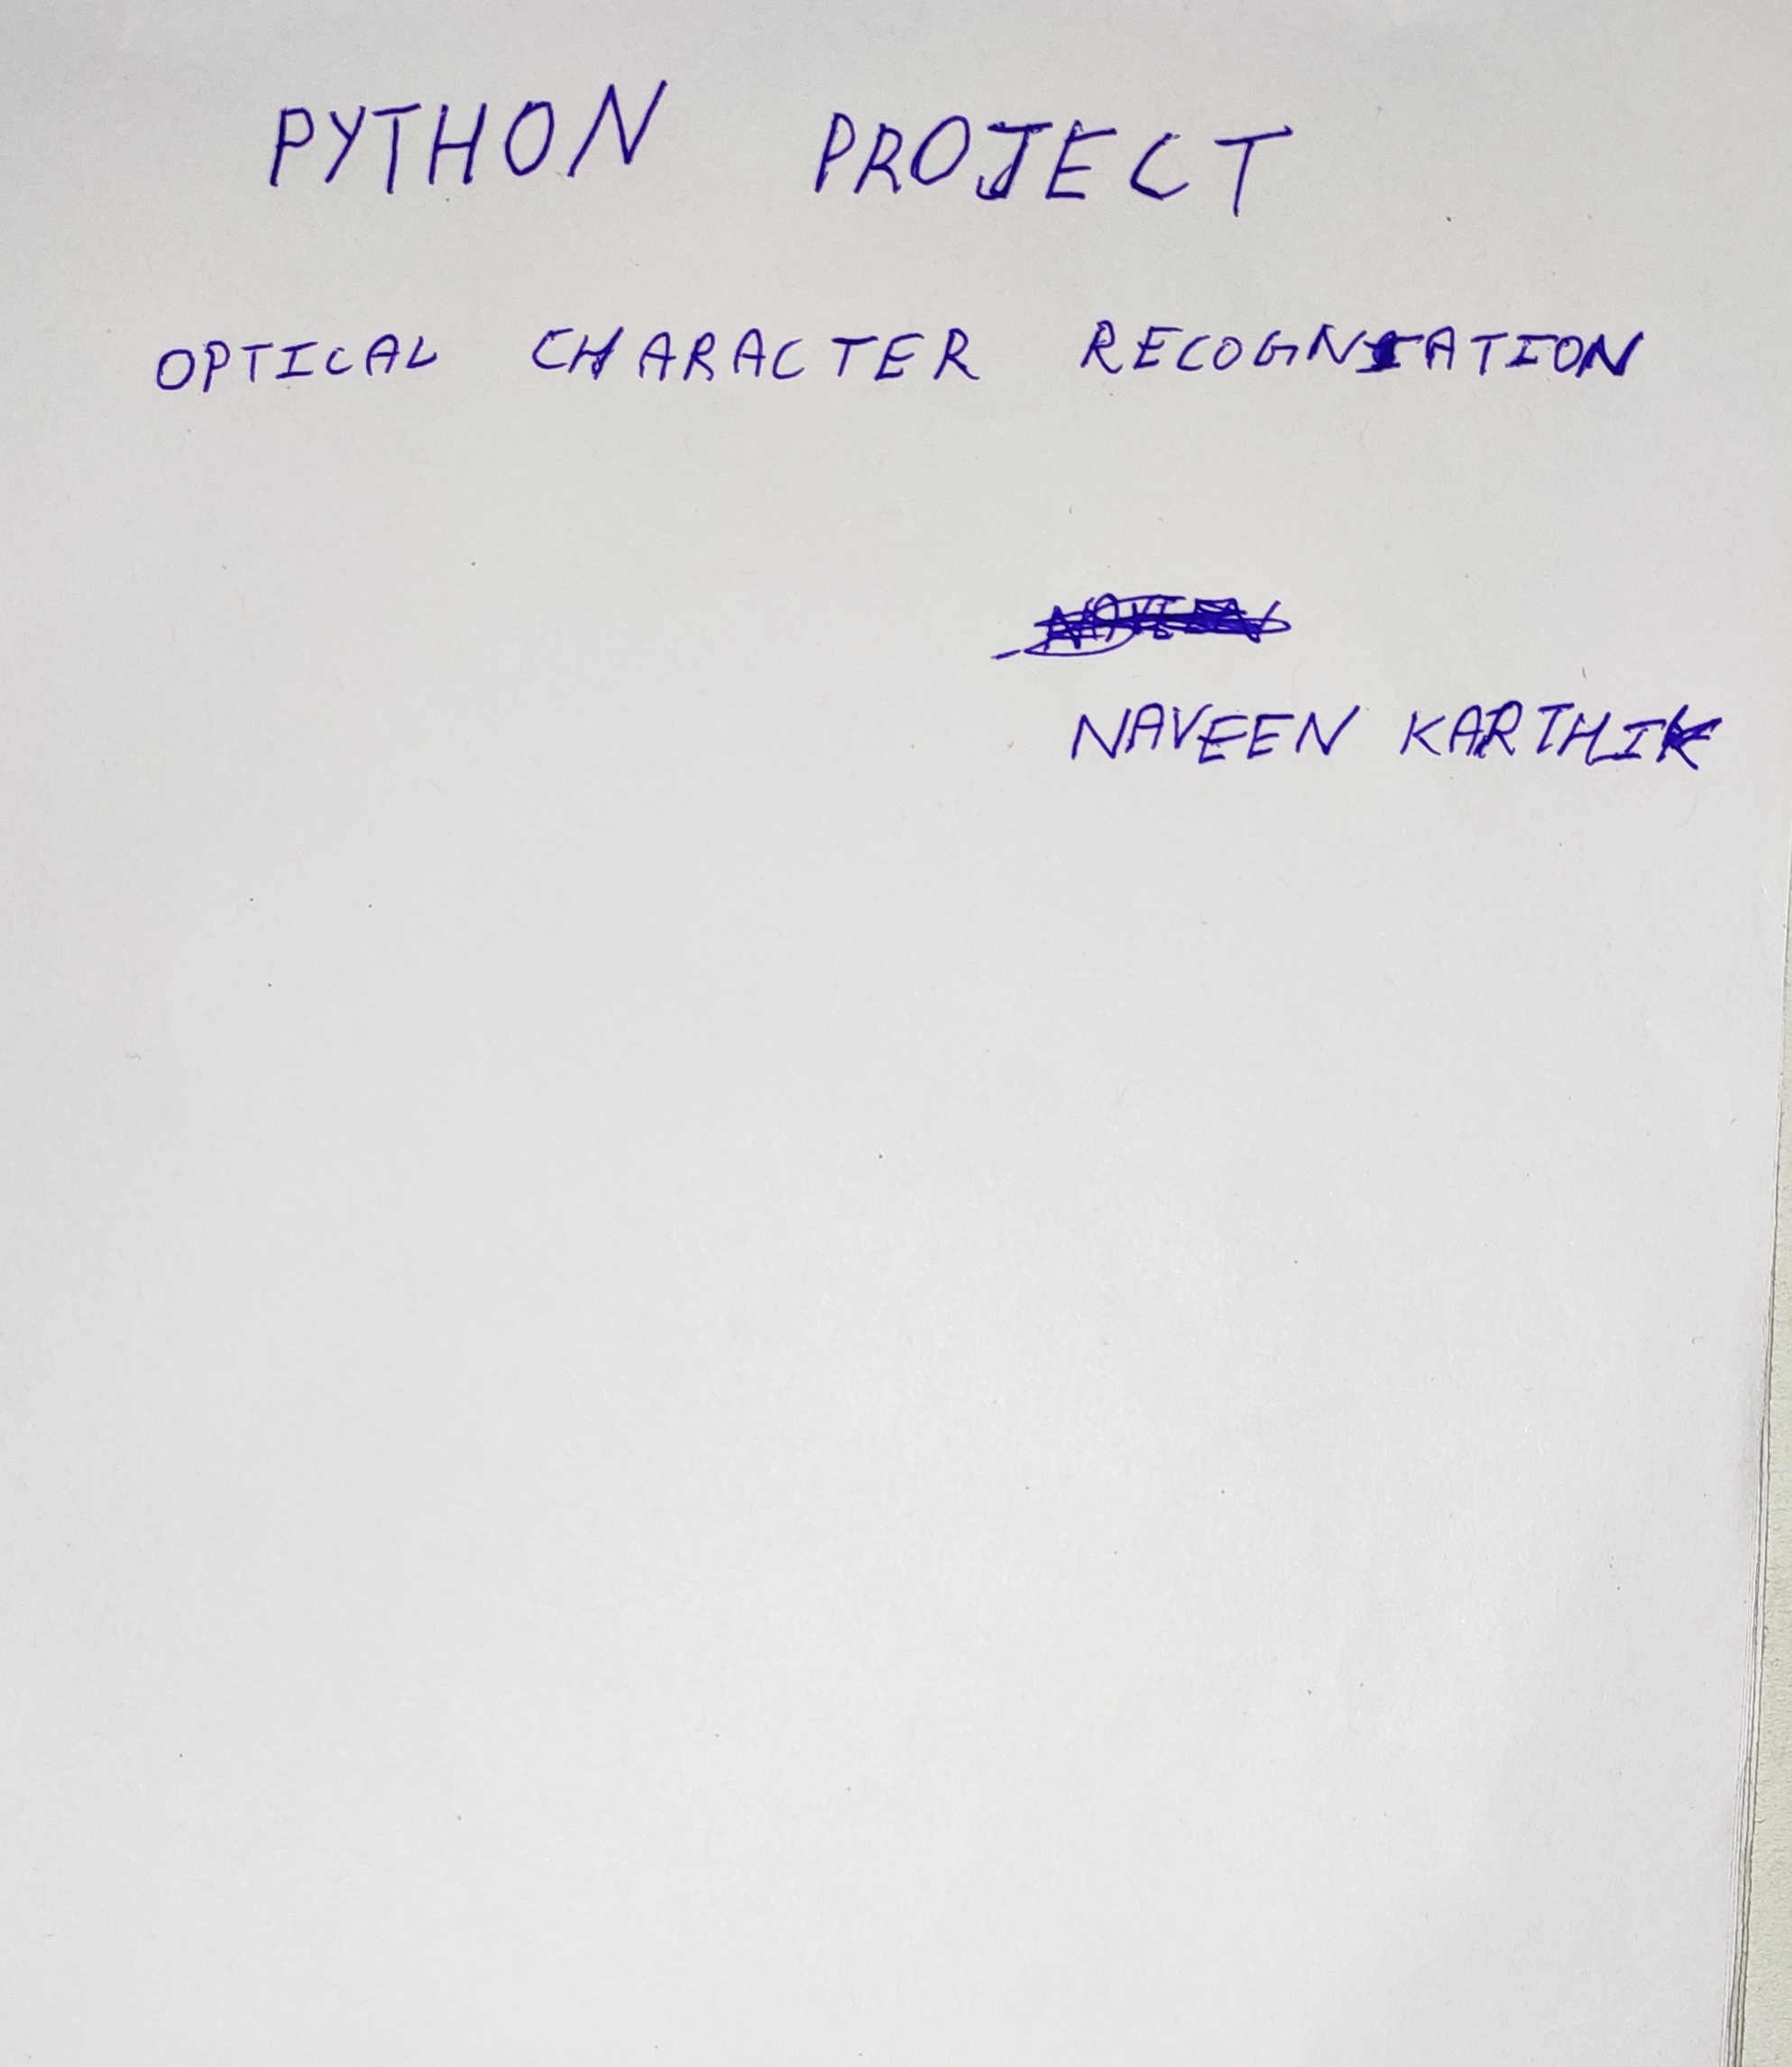 PYTHON PROJECT
OPTICAL CHARACTER RECOGNIATION
NAVEEN KARTHIK